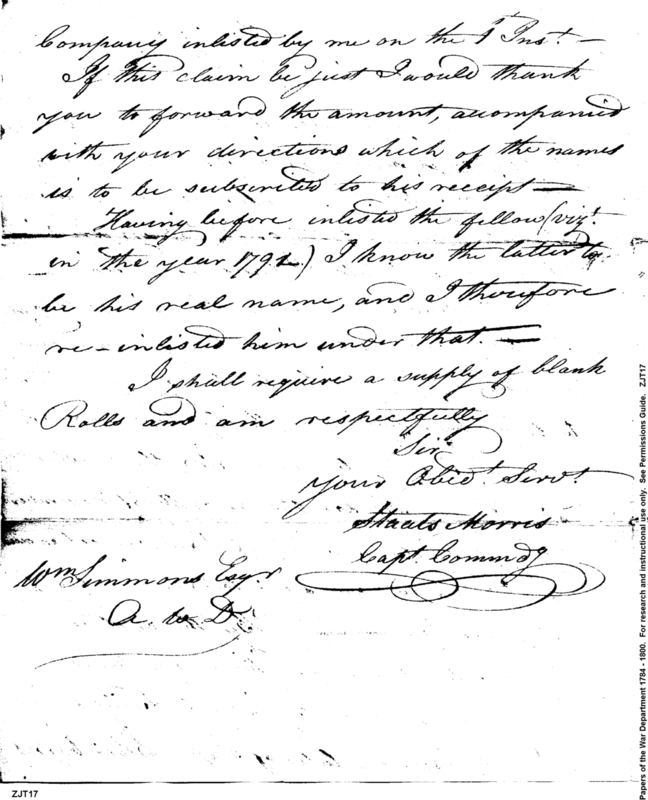 Company inlisted by me on the 1st Inst. —
If this claim be just I would thank
you to forward the amount, accompanied
with your directions which of the names
is to be subscribed to his receipt —
Having before inlisted the fellow (vizt.
in the year 1791) I know the latter to
be his real name, and I therefore
re-inlisted him under that. —
I shall require a supply of blank
Rolls and am respectfully
Sir
your Obedt. Servt.
Staats Morris
Capt. Commdg
Wm Simmons Esqr.
A. W D.
ZJT17
Papers of the War Department 1784 - 1800. For research and instructional use only. See Permissions Guide. ZJT17